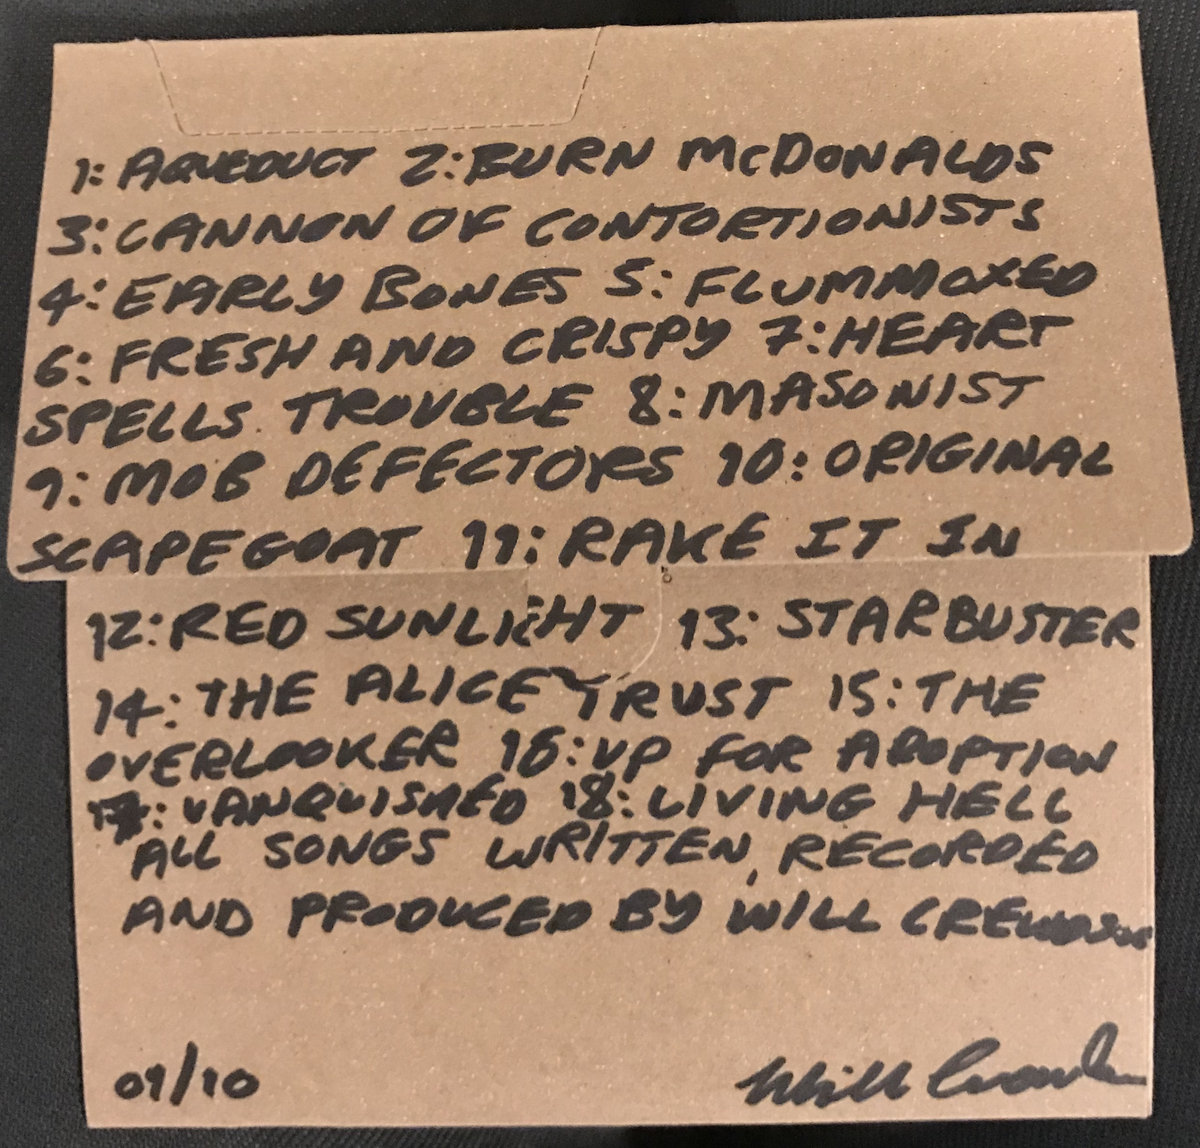 1: AQUEDUCT 2: BURN McDONALDS
3: CANNON OF CONTORTIONISTS
4: EARLY BONES 5: FLUMMOXED
6: FRESH AND CRISPY 7: HEART
SPELLS TROUBLE 8: MASONIST
9: MOB DEFECTORS 10: ORIGINAL
SCAPEGOAT 11: RAKE IT IN
12: RED SUNLIGHT 13: STARBUSTER
14: THE ALICE TRUST 15: THE
OVERLOOKER 16: UP FOR ADOPTION
17: VANQUISHED 18: LIVING HELL
ALL SONGS WRITTEN, RECORDED
AND PRODUCED BY WILL CREWDSON
09/10
Will